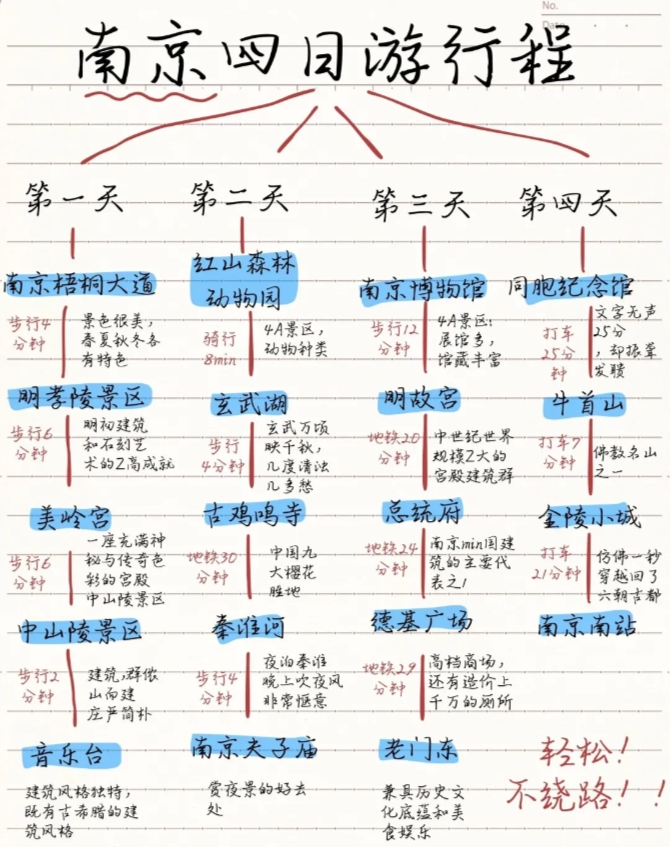 No.
Date
南京四日游行程
第一天
南京梧桐大道
步行4
分钟
景色很美，
春夏秋冬各
有特色
明孝陵景区
步行6
分钟
明初建筑
和石刻艺
术的Z高成就
美岭宫
步行6
分钟
一座充满神
秘与传奇色
彩的宫殿
中山陵景区
中山陵景区
步行2
分钟
建筑,群依
山而建
庄严简朴
音乐台
建筑风格独特，
既有古希腊的建
筑风格
第二天
红山森林
动物园
骑行
8min
4A景区，
动物种类
玄武湖
步行
4分钟
玄武万顷
映千秋，
几度清浊
几多愁
古鸡鸣寺
地铁30
分钟
中国九
大樱花
胜地
秦淮河
步行4
分钟
夜泊秦淮
晚上吹夜风
非常惬意
南京夫子庙
赏夜景的好去
处
第三天
南京博物馆
步行12
分钟
4A景区：
展馆多，
馆藏丰富
明故宫
地铁20
分钟
中世纪世界
规模Z大的
宫殿建筑群
总统府
地铁24
分钟
南京min国建
筑的主要代
表之1
德基广场
地铁29
分钟
高档商场，
还有造价上
千万的厕所
老门东
兼具历史文
化底蕴和美
食娱乐
第四天
同胞纪念馆
打车
25分
钟
文字无声
25分
，却振聋
发聩
牛首山
打车7
分钟
佛教名山
之一
金陵小城
打车
21分钟
仿佛一秒
穿越回了
六朝古都
南京南站
轻松！
不绕路！！